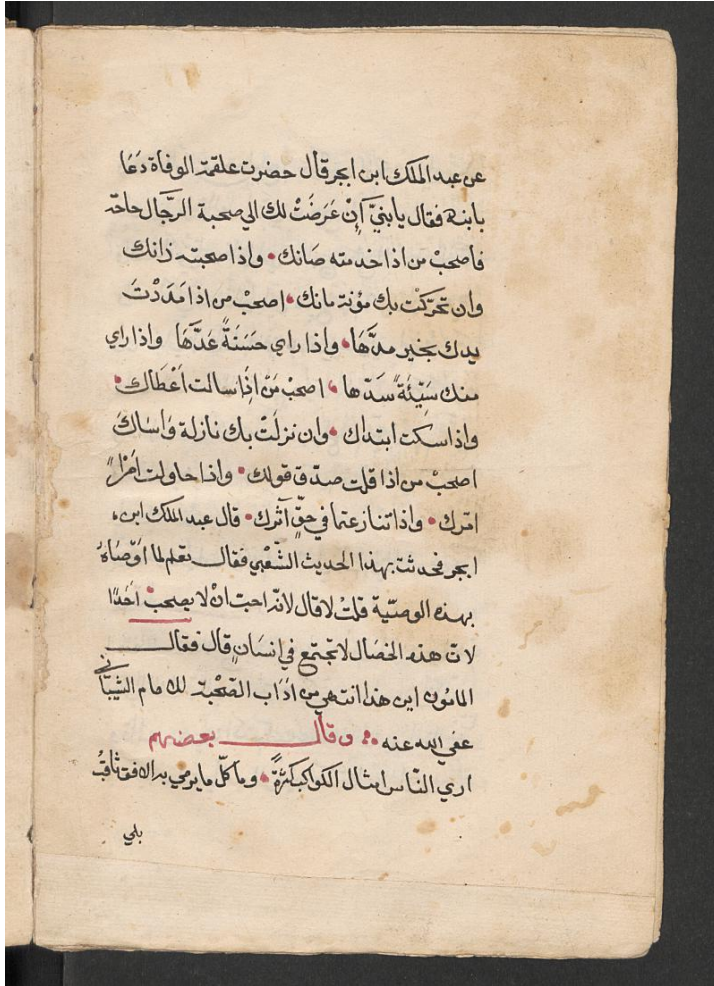 عن عبد الملك ابن ابجر قال حضرت علقمة الوفاة دَعَا
بابنه فقال يا بنيّ اَِنْ عَرَضَتْ لك الي صحبة الرّجال حاجة
فاصحبْ من اذا خدمته صَانك • واذا صحبته زانك
وان تحرّكتْ بك مؤنة مانك • اصحبْ من اذا مَدَدْتَ
يدك بخير مدَّهَا • واذا راي حَسَنَةً عَدَّهَا واذا راي
منك سَيّئَةً سَدّها • اصحبْ مَنْ اذا سالت اَعْطَاك •
واذا سكت ابتداك • وان نزلَتْ بك نازلة وَاسَاكَ
اصحبْ من اذا قلت صدّق قولك • واذا حاولت امْرًا
امّرك • واذا تنازعتما في حقٍّ آثرك • قال عبد الملك ابن
ابجر فحدثت بهذا الحديث الشّعْبي فقال تعلم لما اَوْصَاهُ
بهذه الوصيّة قلتُ لا قال لانّه احبّ انْ لا يصحبْ اَحَدًا
لانّ هذه الخصَال لا تجتمع في انسَانٍ قال فقال
المامُون اين هذا انتهي من اٰدَاب الصّحْبة للامام الشّيبَانّي
عفي الله عنه • وقال بعضهم
اري النّاس امثال الكواكب كثرةً • وما كلّ ما يرمي به الافق ثاقبُ
بلي